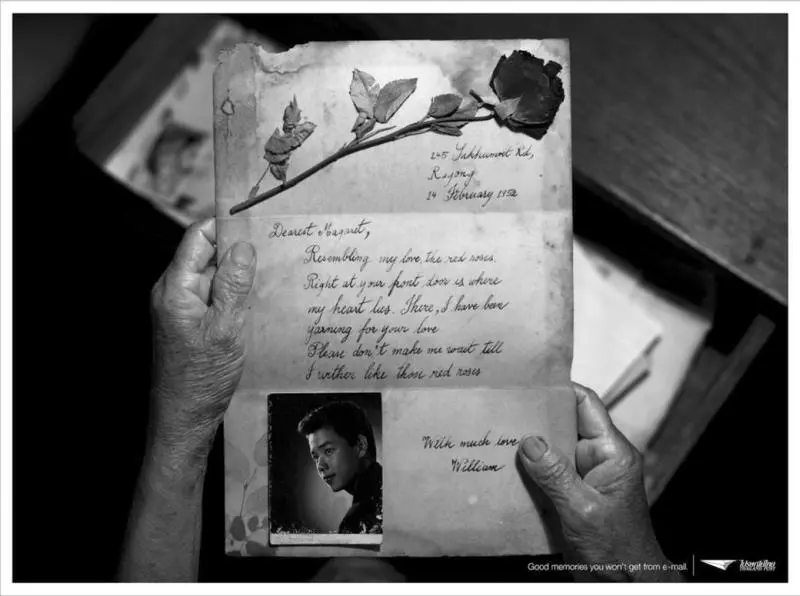 245 Sukhumvit Rd,
Rayong
14 February 1952
Dearest Magaret,
Resembling my love, the red roses.
Right at your front door is where
my heart lies. There, I have been
yarning for your love
Please don't make me wait till
I wither like those red roses
With much love
William
Good memories you won't get from e-mail.
ไปรษณีย์ไทย
THAILAND POST